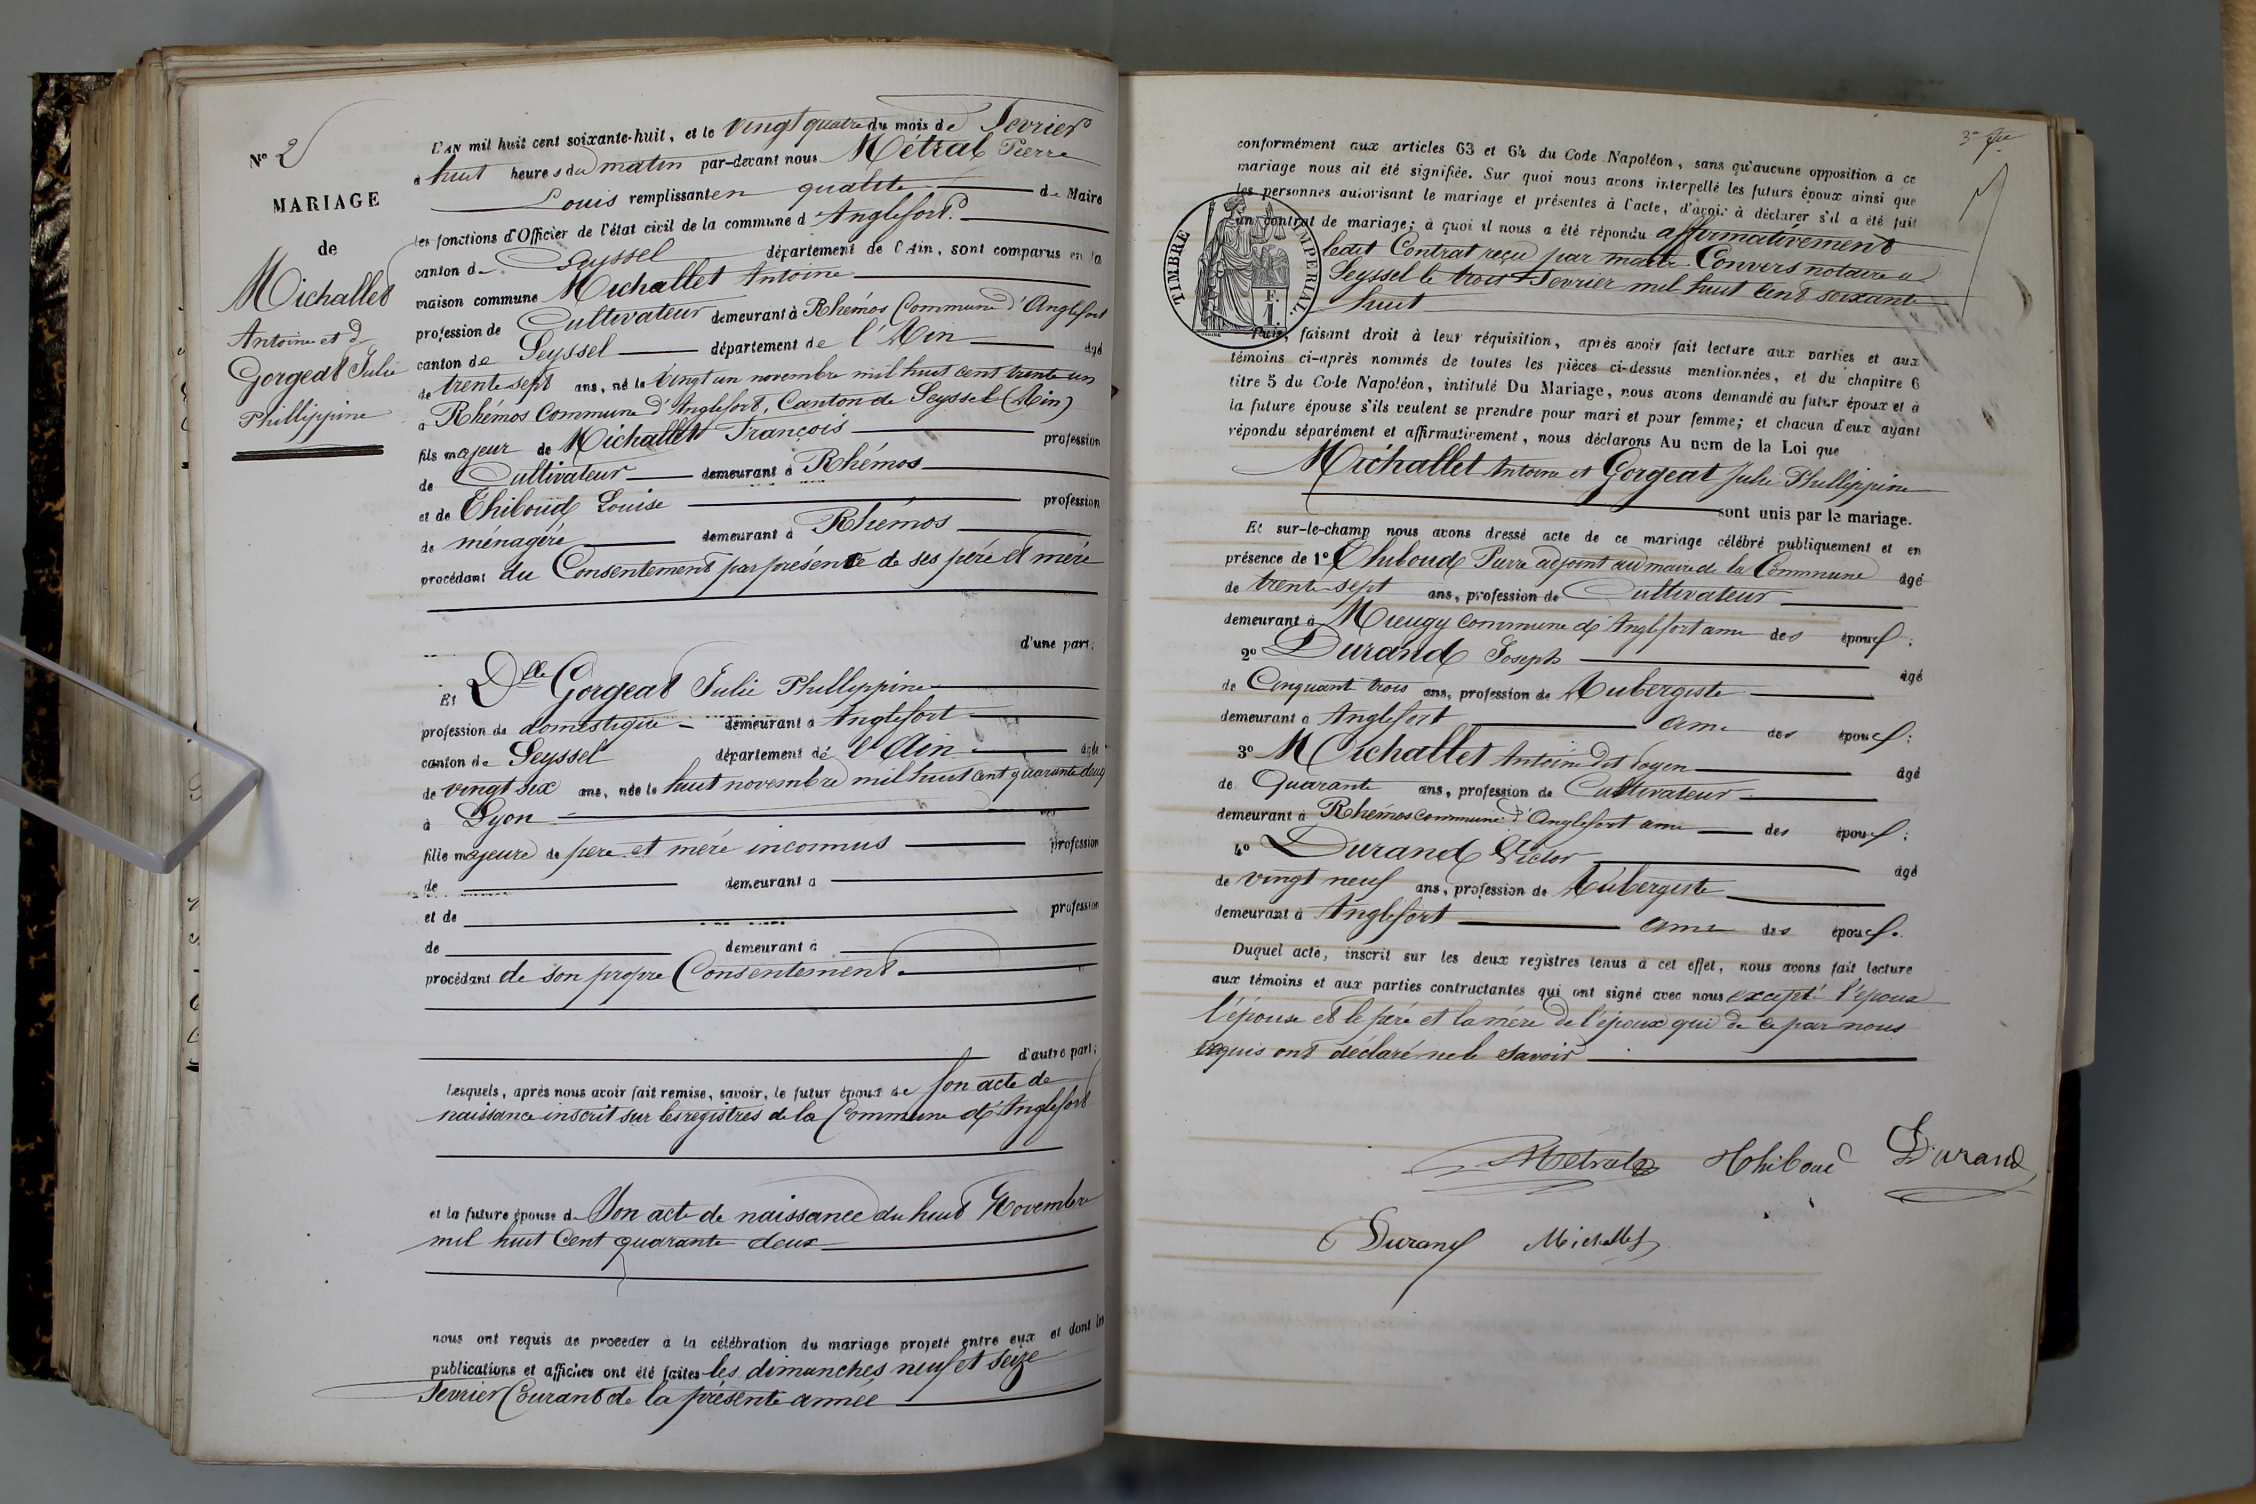 N° 2
MARIAGE
de
Michallet
Antoine et de
Gorgeat Julie
Phillippine
L'AN mil huit cent soixante-huit, et le vingt quatre du mois de Fevrier
à huit heures du matin par-devant nous Métral Pierre
Louis remplissant en qualité de Maire
les fonctions d'Officier de l'état civil de la commune d'Anglefort
canton de Seyssel département de l'Ain, sont comparus en la
maison commune Michallet Antoine
profession de Cultivateur demeurant à Rhémos Commune d'Anglefort
canton de Seyssel département de l'Ain âgé
de trente sept ans, né le vingt un novembre mil huit cent trente un
à Rhémos Commune d'Anglefort, Canton de Seyssel (Ain)
fils majeur de Michallet François profession
de Cultivateur demeurant à Rhémos
et de Thiboud Louise profession
de ménagère demeurant à Rhémos
procédant du Consentement par présence de ses père et mère
d'une part;
Et Dlle Gorgeat Julie Phillippine
profession de domestique demeurant à Anglefort
canton de Seyssel département de l'Ain âgée
de vingt six ans, née le huit novembre mil huit cent quarante deux
à Lyon
fille majeure de père et mère inconnus profession
de demeurant à
et de profession
de demeurant à
procédant de son propre Consentement
d'autre part;
Lesquels, après nous avoir fait remise, savoir, le futur époux de son acte de
naissance inscrit sur les registres de la Commune d'Anglefort
et la future épouse de Son acte de naissance du huit Novembre
mil huit Cent quarante deux
nous ont requis de procéder à la célébration du mariage projeté entre eux et dont les
publications et affiches ont été faites les dimanches neuf et seize
Fevrier Courant de la présente année
conformément aux articles 63 et 64 du Code Napoléon, sans qu'aucune opposition à ce
mariage nous ait été signifiée. Sur quoi nous avons interpellé les futurs époux ainsi que
les personnes autorisant le mariage et présentes à l'acte, d'avoir à déclarer s'il a été fait
un contrat de mariage; à quoi il nous a été répondu affirmativement
ledit Contrat reçu par maitre Convers notaire à
Seyssel le trois Fevrier mil huit cent soixante
huit
TIMBRE IMPERIAL
F.
1.
Puis, faisant droit à leur réquisition, après avoir fait lecture aux parties et aux
témoins ci-après nommés de toutes les pièces ci-dessus mentionnées, et du chapitre 6
titre 5 du Code Napoléon, intitulé Du Mariage, nous avons demandé au futur époux et à
la future épouse s'ils veulent se prendre pour mari et pour femme; et chacun d'eux ayant
répondu séparément et affirmativement, nous déclarons Au nom de la Loi que
Michallet Antoine et Gorgeat Julie Phillippine
sont unis par le mariage.
Et sur-le-champ nous avons dressé acte de ce mariage célébré publiquement et en
présence de 1° Thiboud Pierre adjoint au maire de la Commune âgé
de trente-sept ans, profession de Cultivateur
demeurant à Mieugy commune d'Anglefort ami des époux;
2° Durand Joseph âgé
de Cinquant trois ans, profession de Aubergiste
demeurant à Anglefort ami des époux;
3° Michallet Antoine dit doyen âgé
de Quarante ans, profession de Cultivateur
demeurant à Rhémos commune d'Anglefort ami des époux;
4° Durand Victor âgé
de vingt neuf ans, profession de Aubergiste
demeurant à Anglefort ami des époux.
Duquel acte, inscrit sur les deux registres tenus à cet effet, nous avons fait lecture
aux témoins et aux parties contractantes qui ont signé avec nous excepté l'époux
l'épouse et le père et la mère de l'époux qui de ce par nous
requis ont déclaré ne le savoir
Métral Thiboud Durand
Durand Michallet